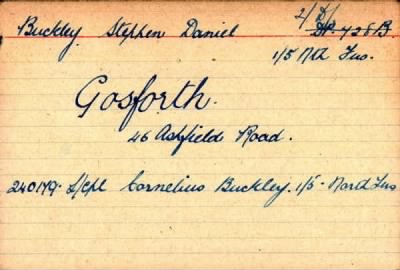 Buckley Stephen Daniel 2/Lt 428B.
1/5 Nth Fus.
Gosforth.
46 Ashfield Road.
240179. L/Cpl Cornelius Buckley. 1/5 - North Fus